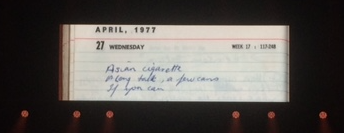 APRIL, 1977
27 WEDNESDAY WEEK 17 : 117-248
Asian cigarette
A long talk, a few cans
If you can